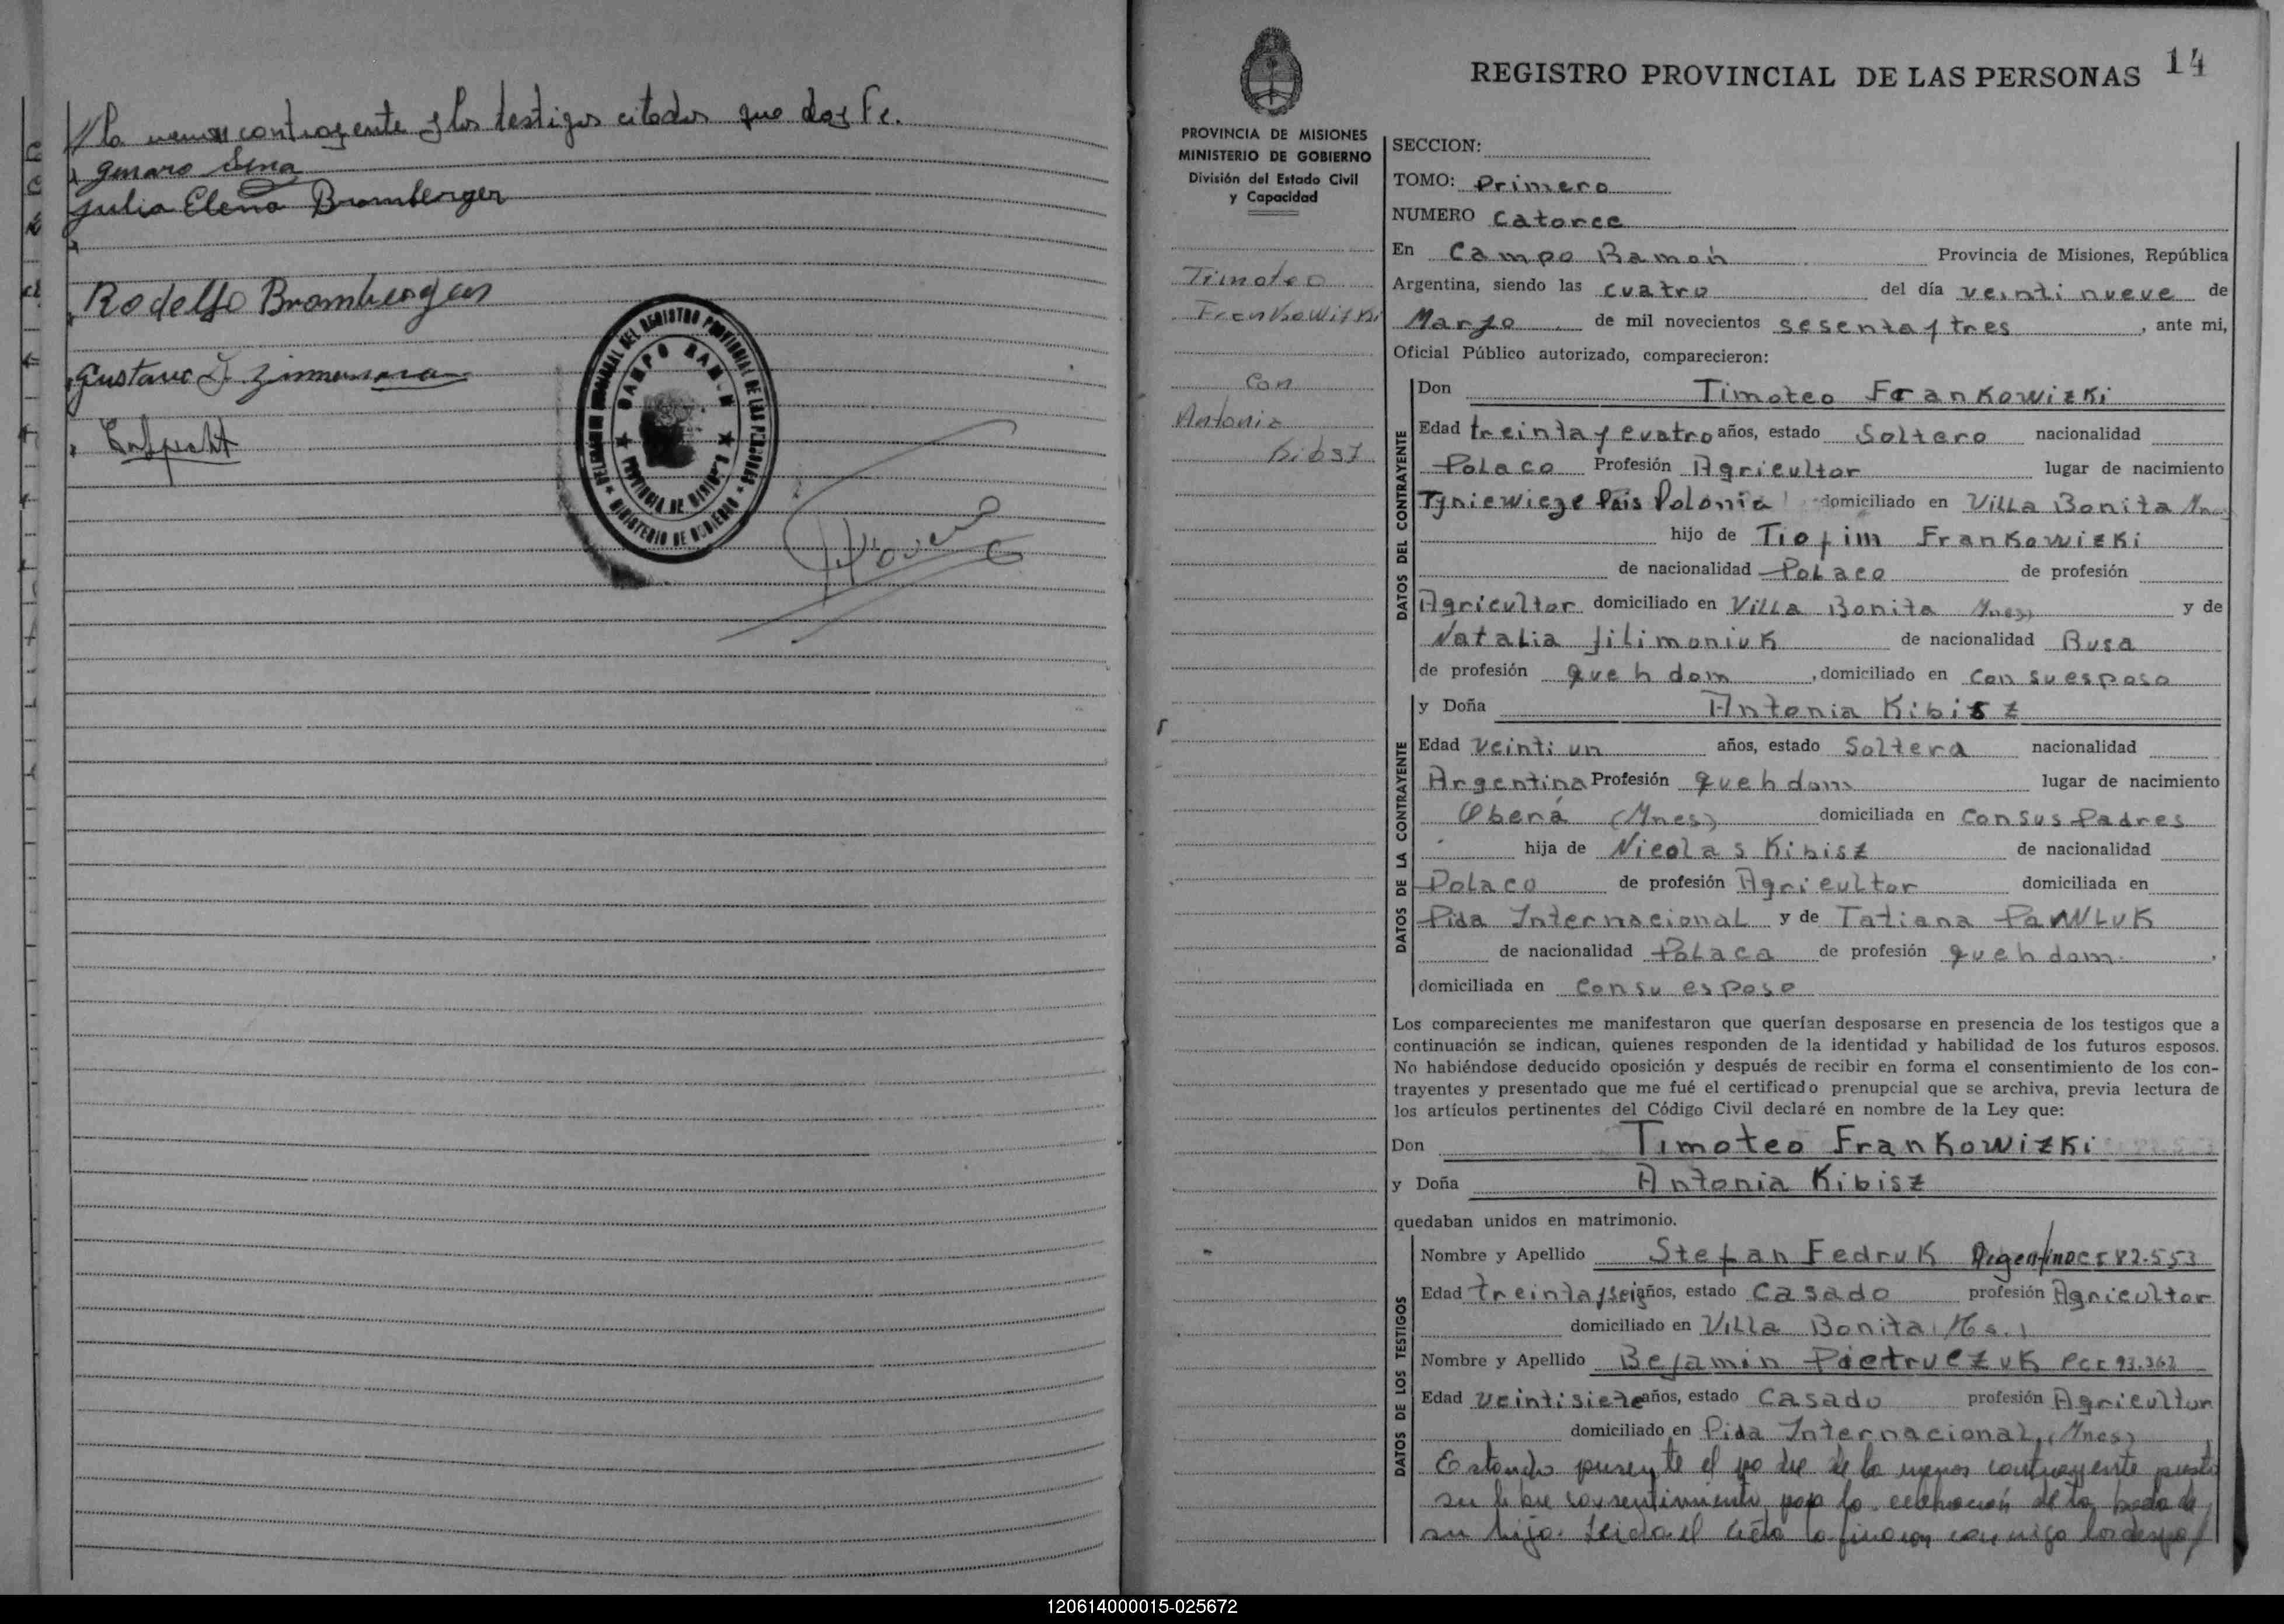 // la menor contrayente y los testigos citados que doy Fe.
Genaro Sena
Julia Elena Bromberger
Rodolfo Bromberger
Gustavo F. Zimmermann
CAMPO RAMON
PROVINCIA DE MISIONES
MINISTERIO DE GOBIERNO
14
REGISTRO PROVINCIAL DE LAS PERSONAS
PROVINCIA DE MISIONES
MINISTERIO DE GOBIERNO
División del Estado Civil
y Capacidad
Timoteo
Frankowizki
con
Antonia
Kibisz
SECCION:
TOMO: Primero
NUMERO Catorce
En Campo Ramón Provincia de Misiones, República
Argentina, siendo las cuatro del día veinti nueve de
Marzo de mil novecientos sesenta y tres, ante mi,
Oficial Público autorizado, comparecieron:
DATOS DEL CONTRAYENTE
Don Timoteo Frankowizki
Edad treinta y cuatro años, estado Soltero nacionalidad
Polaco Profesión Agricultor lugar de nacimiento
Tyniewicze Pais Polonia domiciliado en Villa Bonita Mnes
hijo de Tiofim Frankowizki
de nacionalidad Polaco de profesión
Agricultor domiciliado en Villa Bonita Mnes) y de
Natalia filimoniuk de nacionalidad Rusa
de profesión queh dom, domiciliado en con su esposo
DATOS DE LA CONTRAYENTE
y Doña Antonia Kibisz
Edad Veinti un años, estado Soltera nacionalidad
Argentina Profesión queh dom lugar de nacimiento
Oberá (Mnes) domiciliada en Con sus Padres
hija de Nicolas Kibisz de nacionalidad
Polaco de profesión Agricultor domiciliada en
Pida Internacional y de Tatiana Pawluk
de nacionalidad Polaca de profesión queh dom.
domiciliada en Con su esposo
Los comparecientes me manifestaron que querían desposarse en presencia de los testigos que a
continuación se indican, quienes responden de la identidad y habilidad de los futuros esposos.
No habiéndose deducido oposición y después de recibir en forma el consentimiento de los con-
trayentes y presentado que me fué el certificado prenupcial que se archiva, previa lectura de
los artículos pertinentes del Código Civil declaré en nombre de la Ley que:
Don Timoteo Frankowizki
y Doña Antonia Kibisz
quedaban unidos en matrimonio.
DATOS DE LOS TESTIGOS
Nombre y Apellido Stefan Fedruk Argentino C I 82.553
Edad treinta y seis años, estado Casado profesión Agricultor
domiciliado en Villa Bonita Ms.)
Nombre y Apellido Bejamin Pietruczuk PCI 93.362
Edad veintisiete años, estado Casado profesión Agricultor
domiciliado en Pida Internacional (Mnes)
Estando presente el padre de la menor contrayente presta
su libre consentimiento para la celebración de la boda de
su hija. Leida el acta la firman conmigo los despo/
120614000015-025672